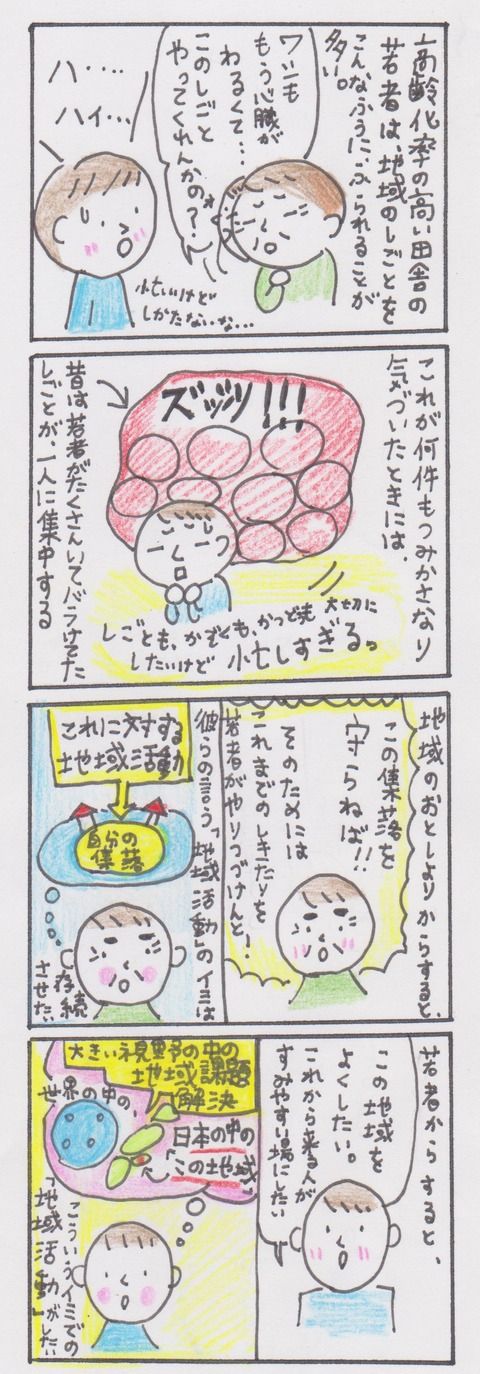 高齢化率の高い田舎の
若者は、地域のしごとを
こんなふうに、ふられることが
多い。
ワシも
もう心臓が
わるくて…
このしごと
やってくれんかの?
ハ‥‥
ハイ…
忙しいけど
しかたない‥な…
これが何件もつみかさなり
気づいたときには、
ズッシリ!!!
昔は若者がたくさんいてバラけてた
しごとが、一人に集中する
しごとも、かぞくも、かつどうも 大切に
したいけど 忙しすぎるっ
地域のおとしよりからすると、
この集落を
守らねば!!
そのためには
これまでのしきたりを
若者がやりつづけんと!
彼らの言う「地域活動」のイミは
これに対する
地域活動
自分の
集落
存続
させたい
若者からすると、
この地域を
よくしたい。
これから来る人が
すみやすい場にしたい
大きい視野の中の
地域課題
解決
世界の中の、
日本の中の
「この地域」
こういうイミでの
「地域活動」がしたい